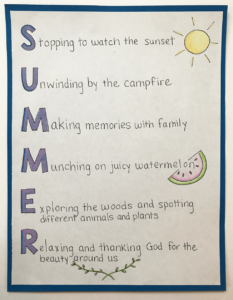 Stopping to watch the sunset
Unwinding by the campfire
Making memories with family
Munching on juicy watermelon
Exploring the woods and spotting
different animals and plants
Relaxing and thanking God for the
beauty around us